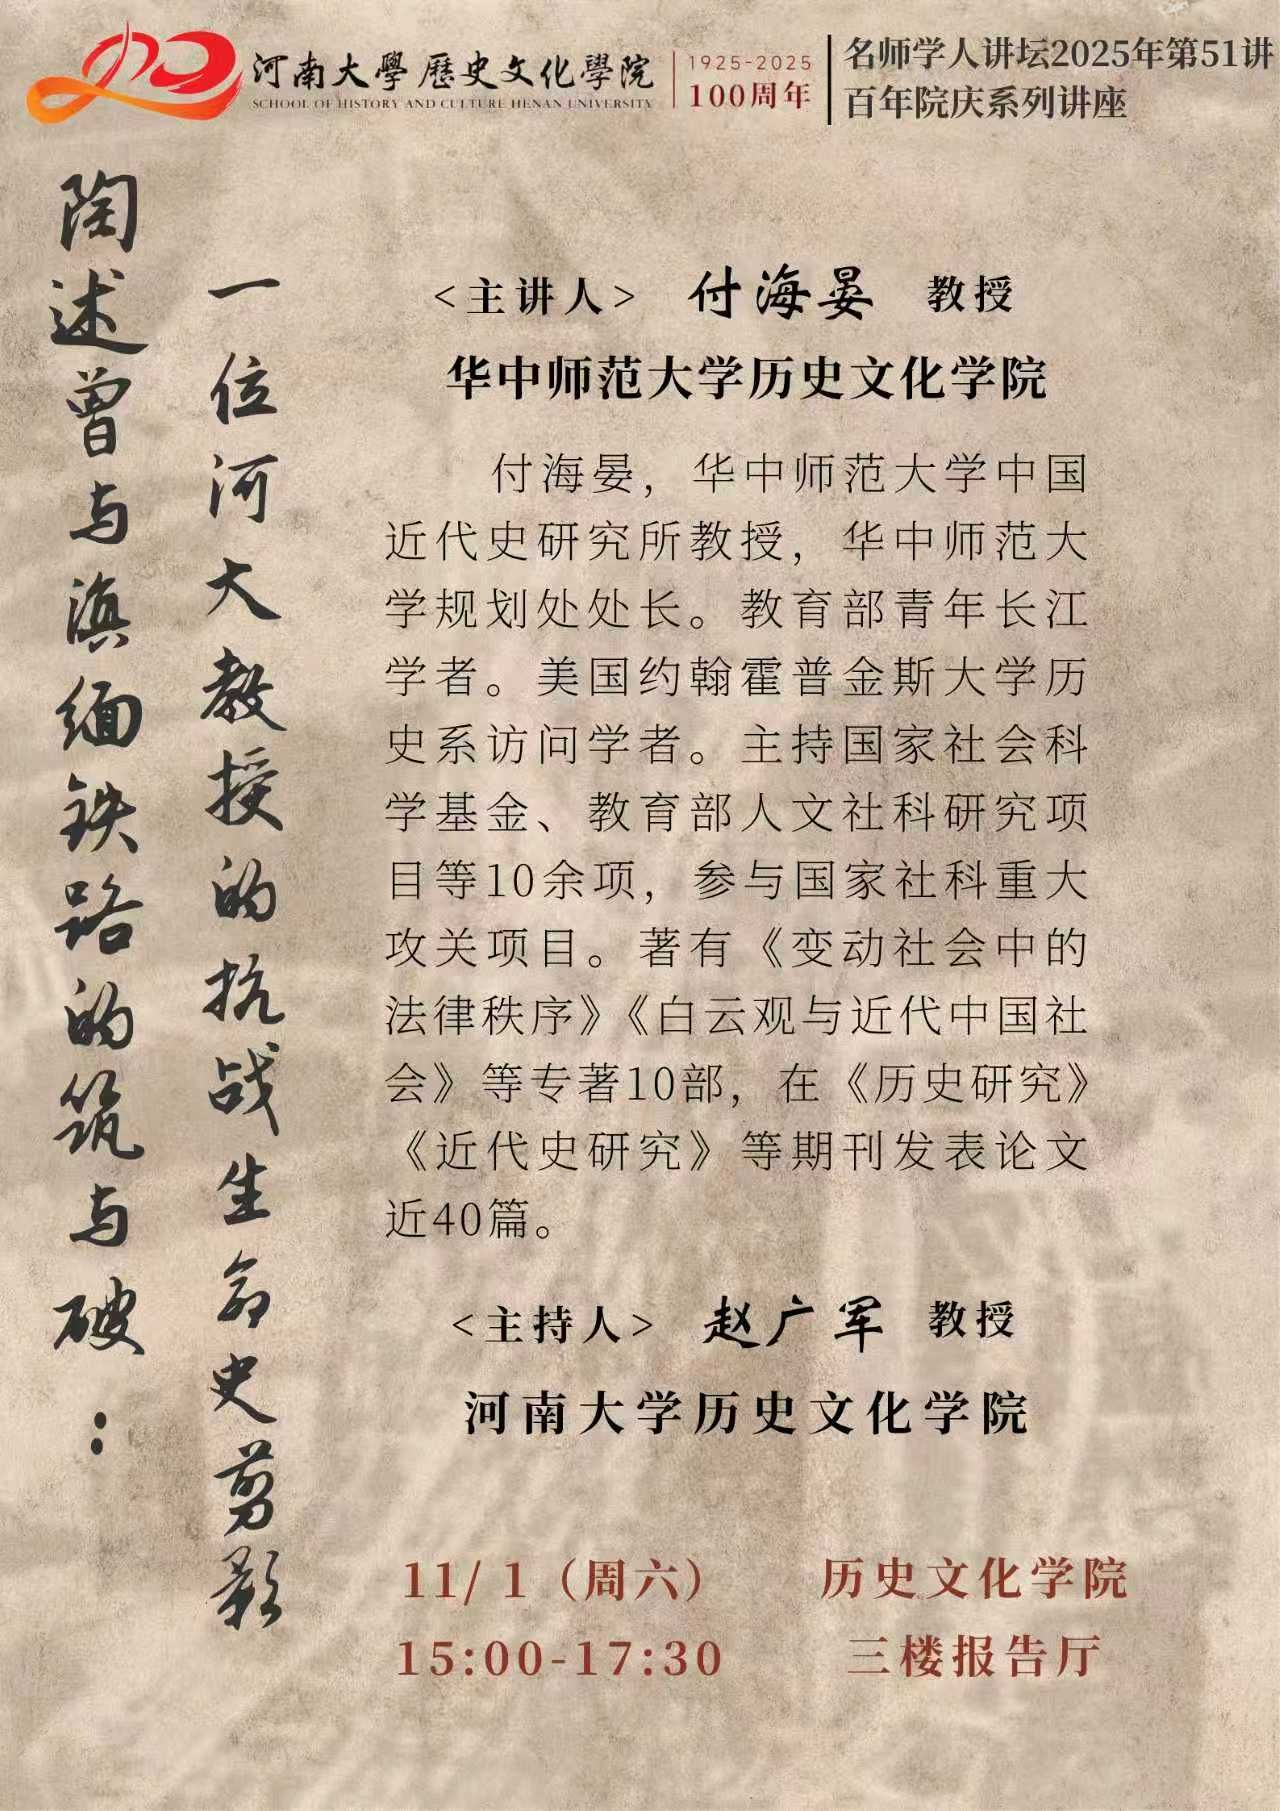 河南大學 歷史文化學院
SCHOOL OF HISTORY AND CULTURE HENAN UNIVERSITY
1925-2025
100周年
名师学人讲坛2025年第51讲
百年院庆系列讲座
陶述曾与滇缅铁路的筑与破：
一位河大教授的抗战生命史剪影
<主讲人> 付海晏 教授
华中师范大学历史文化学院
付海晏，华中师范大学中国
近代史研究所教授，华中师范大
学规划处处长。教育部青年长江
学者。美国约翰霍普金斯大学历
史系访问学者。主持国家社会科
学基金、教育部人文社科研究项
目等10余项，参与国家社科重大
攻关项目。著有《变动社会中的
法律秩序》《白云观与近代中国社
会》等专著10部，在《历史研究》
《近代史研究》等期刊发表论文
近40篇。
<主持人> 赵广军 教授
河南大学历史文化学院
11/ 1（周六）
15:00-17:30
历史文化学院
三楼报告厅